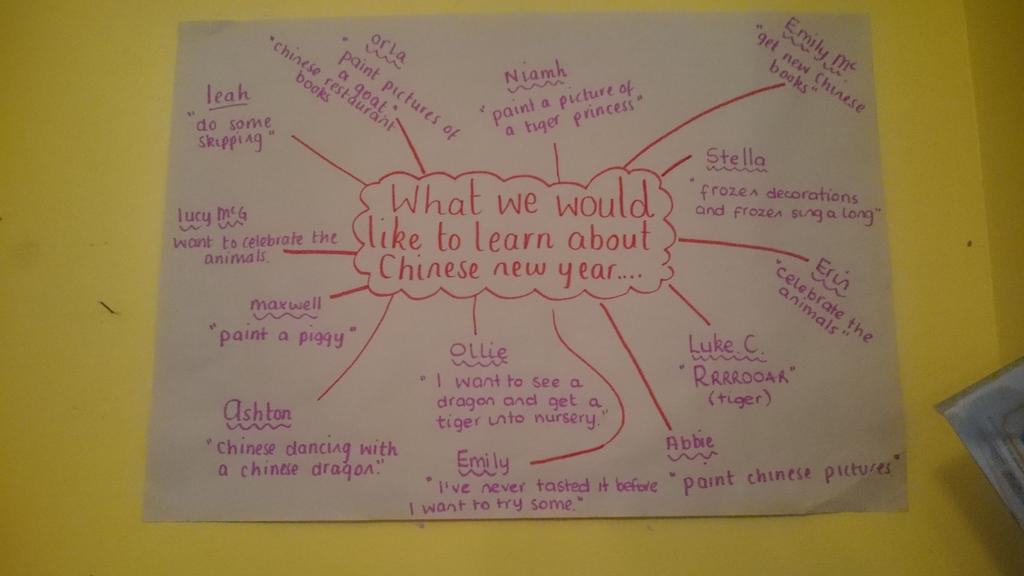 What we would
like to learn about
Chinese new year....
leah
"do some
skipping"
orla
"paint pictures of
a goat"
"chinese restaurant
books
Niamh
"paint a picture of
a tiger princess"
Emily Mc
"get new Chinese
books"
Stella
"frozen decorations
and frozen sing a long"
Erin
"celebrate the
animals"
Luke C.
"RRRROOAR"
(tiger)
Abbie
"paint chinese pictures"
Emily
"I've never tasted it before
I want to try some."
Ollie
"I want to see a
dragon and get a
tiger into nursery."
Ashton
"Chinese dancing with
a chinese dragon."
maxwell
"paint a piggy"
lucy McG
want to celebrate the
animals.